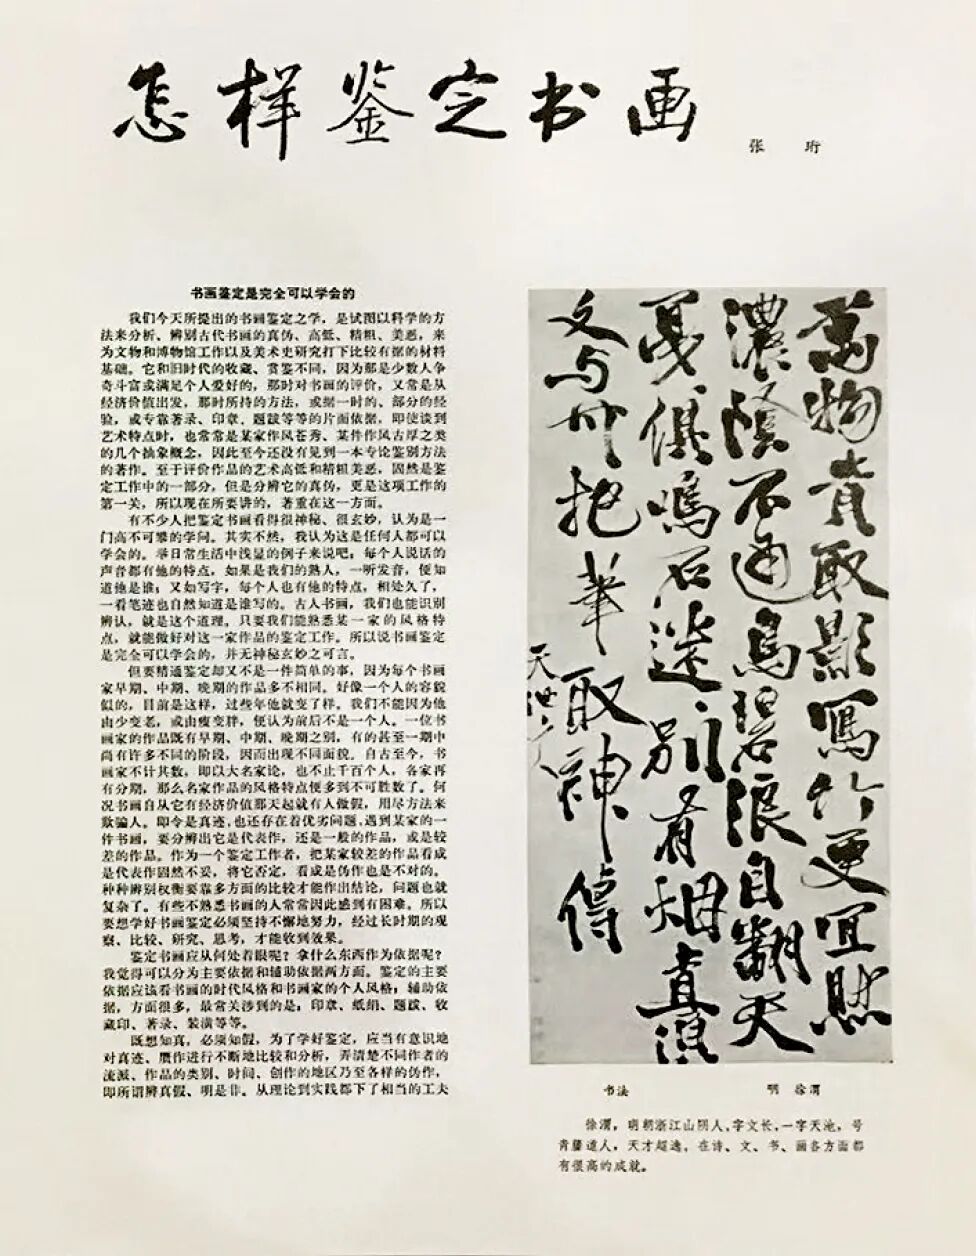 怎样鉴定书画
张 珩
书画鉴定是完全可以学会的
我们今天所提出的书画鉴定之学，是试图以科学的方
法来分析、辨别古代书画的真伪、高低、精粗、美恶，来
为文物和博物馆工作以及美术史研究打下比较有据的材料
基础。它和旧时代的收藏、赏鉴不同，因为那是少数人争
奇斗富或满足个人爱好的，那时对书画的评价，又常是从
经济价值出发，那时所持的方法，或据一时的、部分的经
验，或专靠著录、印章、题跋等等的片面依据，即使谈到
艺术特点时，也常常是某家作风苍秀、某件作风古厚之类
的几个抽象概念，因此至今还没有见到一本专论鉴别方法
的著作。至于评价作品的艺术高低和精粗美恶，固然是鉴
定工作中的一部分，但是分辨它的真伪，更是这项工作的
第一关，所以现在所要讲的，著重在这一方面。
有不少人把鉴定书画看得很神秘、很玄妙，认为是一
门高不可攀的学问。其实不然，我认为这是任何人都可以
学会的。举日常生活中浅显的例子来说吧：每个人说话的
声音都有他的特点，如果是我们的熟人，一听发音，便知
道他是谁；又如写字，每个人也有他的特点，相处久了，
一看笔迹也自然知道是谁写的。古人书画，我们也能识别
辨认，就是这个道理。只要我们能熟悉某一家的风格特
点，就能做好对这一家作品的鉴定工作。所以说书画鉴定
是完全可以学会的，并无神秘玄妙之可言。
但要精通鉴定却又不是一件简单的事，因为每个书画
家早期、中期、晚期的作品多不相同。好像一个人的容貌
似的，目前是这样，过些年他就变了样。我们不能因为他
由少变老，或由瘦变胖，便认为前后不是一个人。一位书
画家的作品既有早期、中期、晚期之别，有的甚至一期中
尚有许多不同的阶段，因而出现不同面貌。自古至今，书
画家不计其数，即以大名家论，也不止千百个人，各家再
有分期，那么名家作品的风格特点便多到不可胜数了。何
况书画自从它有经济价值那天起就有人做假，用尽方法来
欺骗人。即令是真迹，也还存在着优劣问题，遇到某家的一
件书画，要分辨出它是代表作，还是一般的作品，或是较
差的作品。作为一个鉴定工作者，把某家较差的作品看成
是代表作固然不妥，将它否定，看成是伪作也是不对的。
种种辨别权衡要靠多方面的比较才能作出结论，问题也就
复杂了。有些不熟悉书画的人常常因此感到有困难。所以
要想学好书画鉴定必须坚持不懈地努力，经过长时期的观
察、比较、研究、思考，才能收到效果。
鉴定书画应从何处着眼呢？拿什么东西作为依据呢？
我觉得可以分为主要依据和辅助依据两方面。鉴定的主要
依据应该看书画的时代风格和书画家的个人风格；辅助依
据，方面很多，最常关涉到的是：印章、纸绢、题跋、收
藏印、著录、装潢等等。
既想知真，必须知假，为了学好鉴定，应当有意识地
对真迹、赝作进行不断地比较和分析，弄清楚不同作者的
流派、作品的类别、时间、创作的地区乃至各样的伪作，
即所谓辨真假、明是非。从理论到实践都下了相当的工夫
萬物貴取影寫竹更宜然
濃陰不通鳥碧浪自翻天
戛戛俱鳴石迷迷别有烟直須
文与可把筆取神傳
天池
书法 明 徐渭
徐渭，明朝浙江山阴人，字文长，一字天池，号
青藤道人，天才超逸，在诗、文、书、画各方面都
有很高的成就。